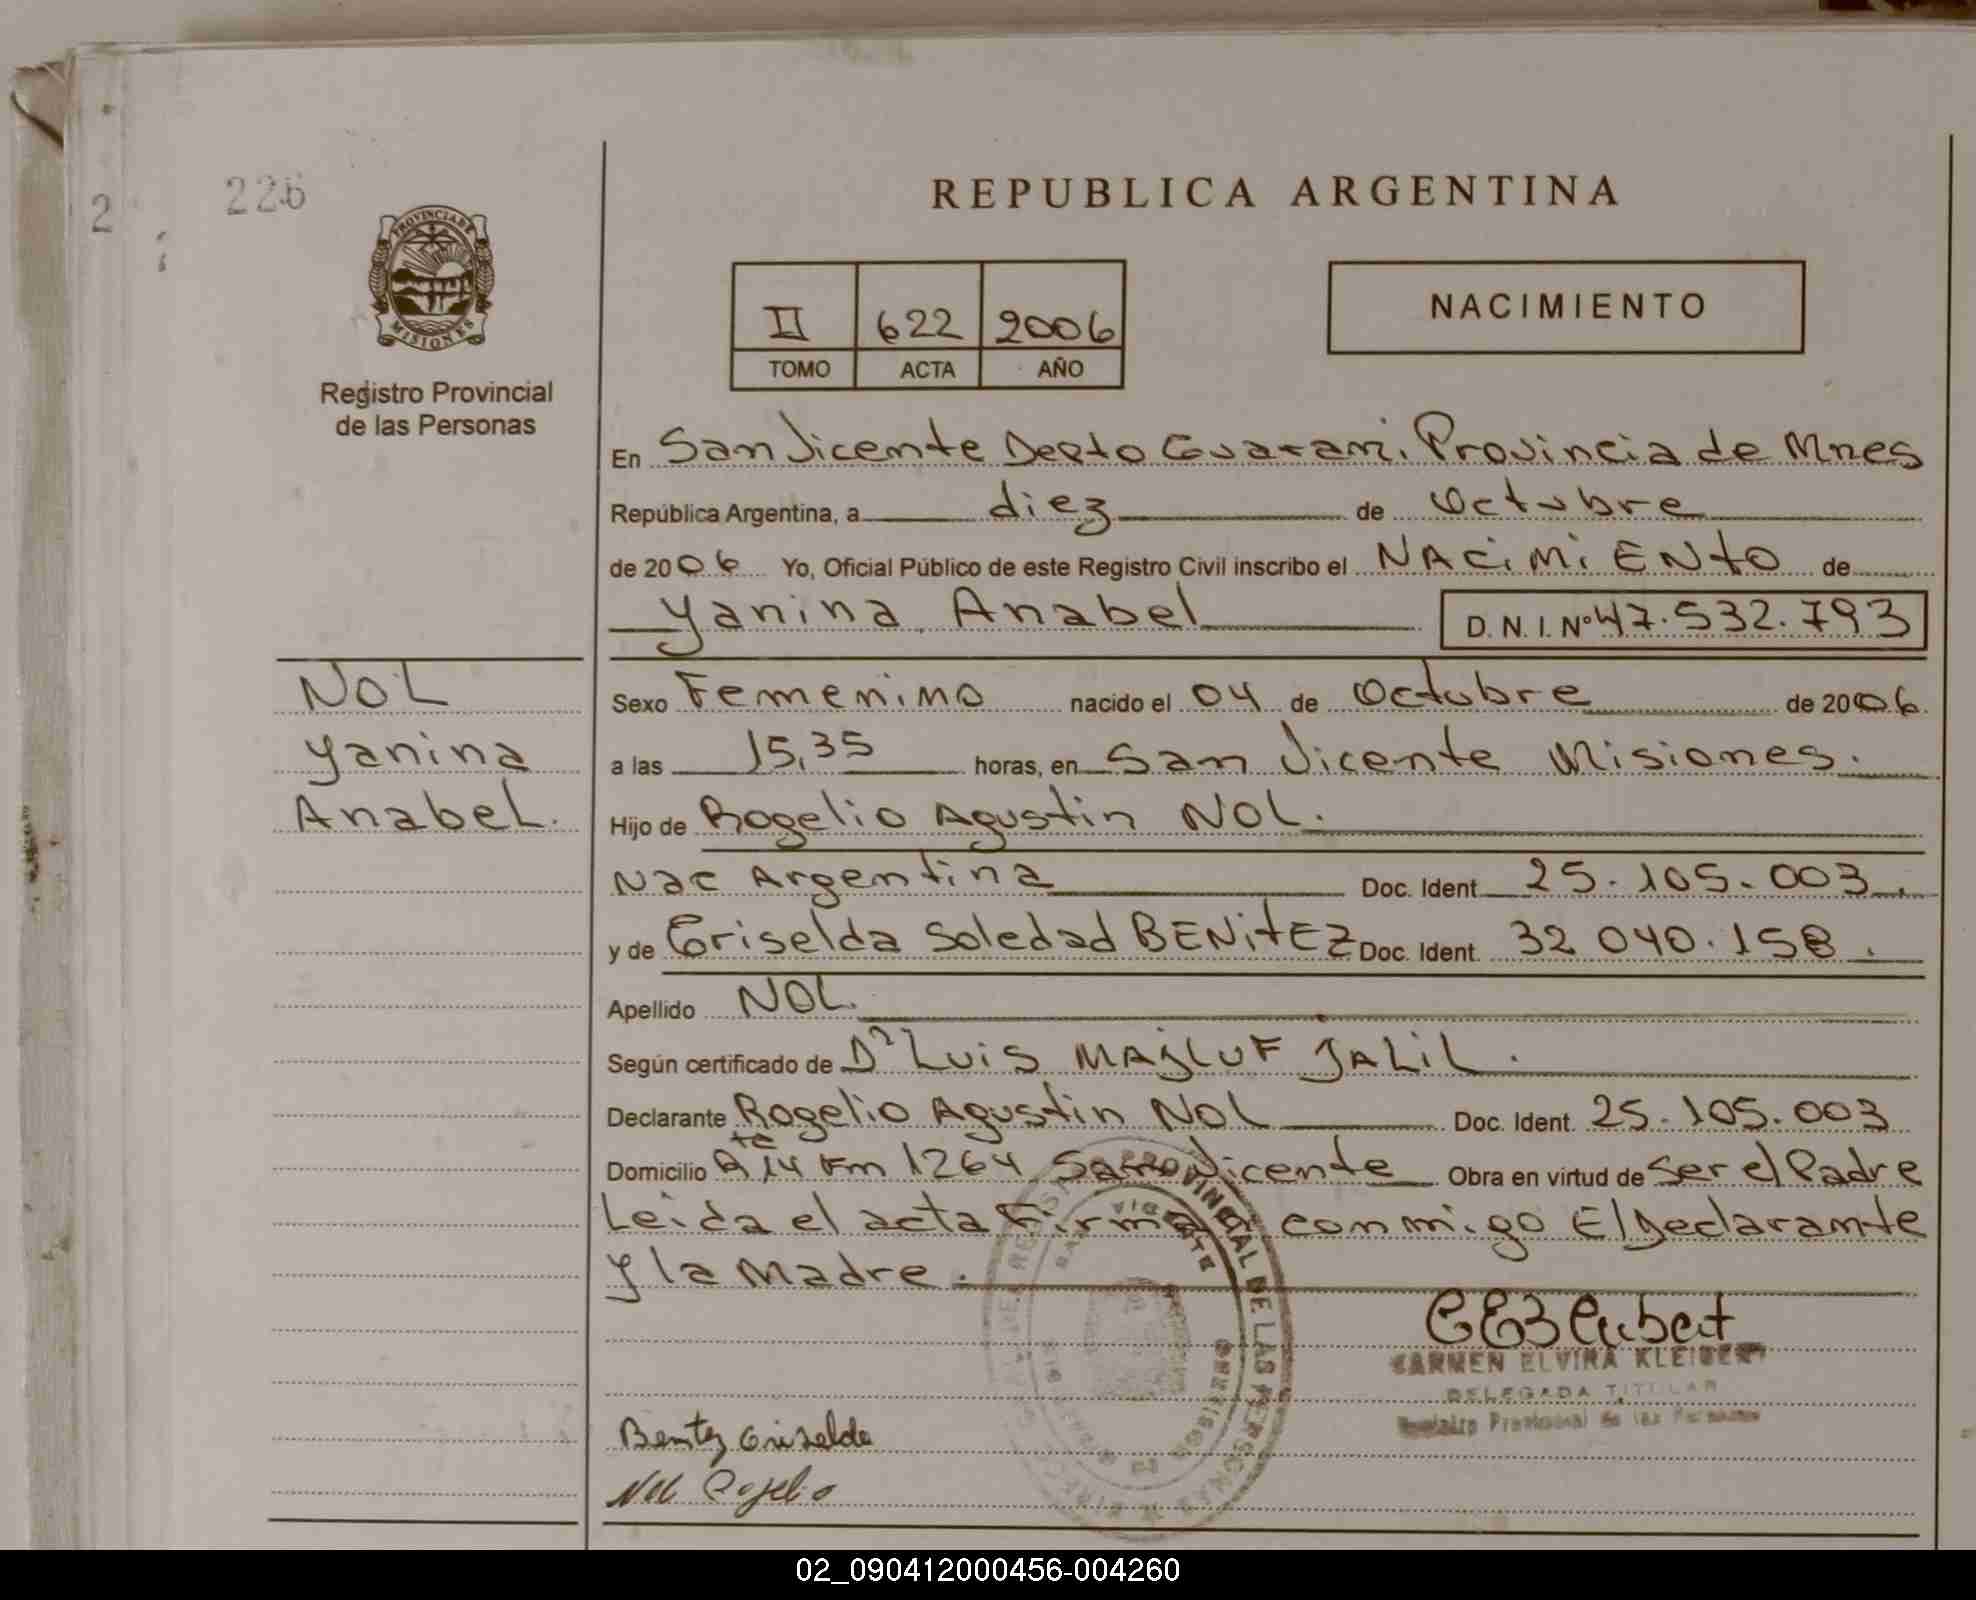 2 226
PROVINCIA DE
MISIONES
Registro Provincial
de las Personas
REPUBLICA ARGENTINA
II 622 2006
TOMO ACTA AÑO
NACIMIENTO
En San Vicente Depto Guarani. Provincia de Mnes
República Argentina, a diez de Octubre
de 2006 Yo, Oficial Público de este Registro Civil inscribo el NACIMIENTO de
Yanina Anabel D. N. I. Nº 47.532.793
NOL
Yanina
Anabel.
Sexo Femenino nacido el 04 de Octubre de 2006.
a las 15,35 horas, en San Vicente Misiones.
Hijo de Rogelio Agustin NOL.
Nac Argentina Doc. Ident 25.105.003.
y de Griselda Soledad BENITEZ Doc. Ident. 32 040.158.
Apellido NOL.
Según certificado de Dr Luis MAJLUF JALIL.
Declarante Rogelio Agustin NOL Doc. Ident. 25.105.003
Domicilio Rte 14 Km 1264 San Vicente Obra en virtud de Ser el Padre
Leida el acta Firman conmigo El Declarante
y la Madre.
PROVINCIAL DE LAS PERSONAS
CARMEN ELVIRA KLEIBERT
DELEGADA TITULAR
Registro Provincial de las Personas
Benitez Griselda
Nol Rogelio
02_090412000456-004260